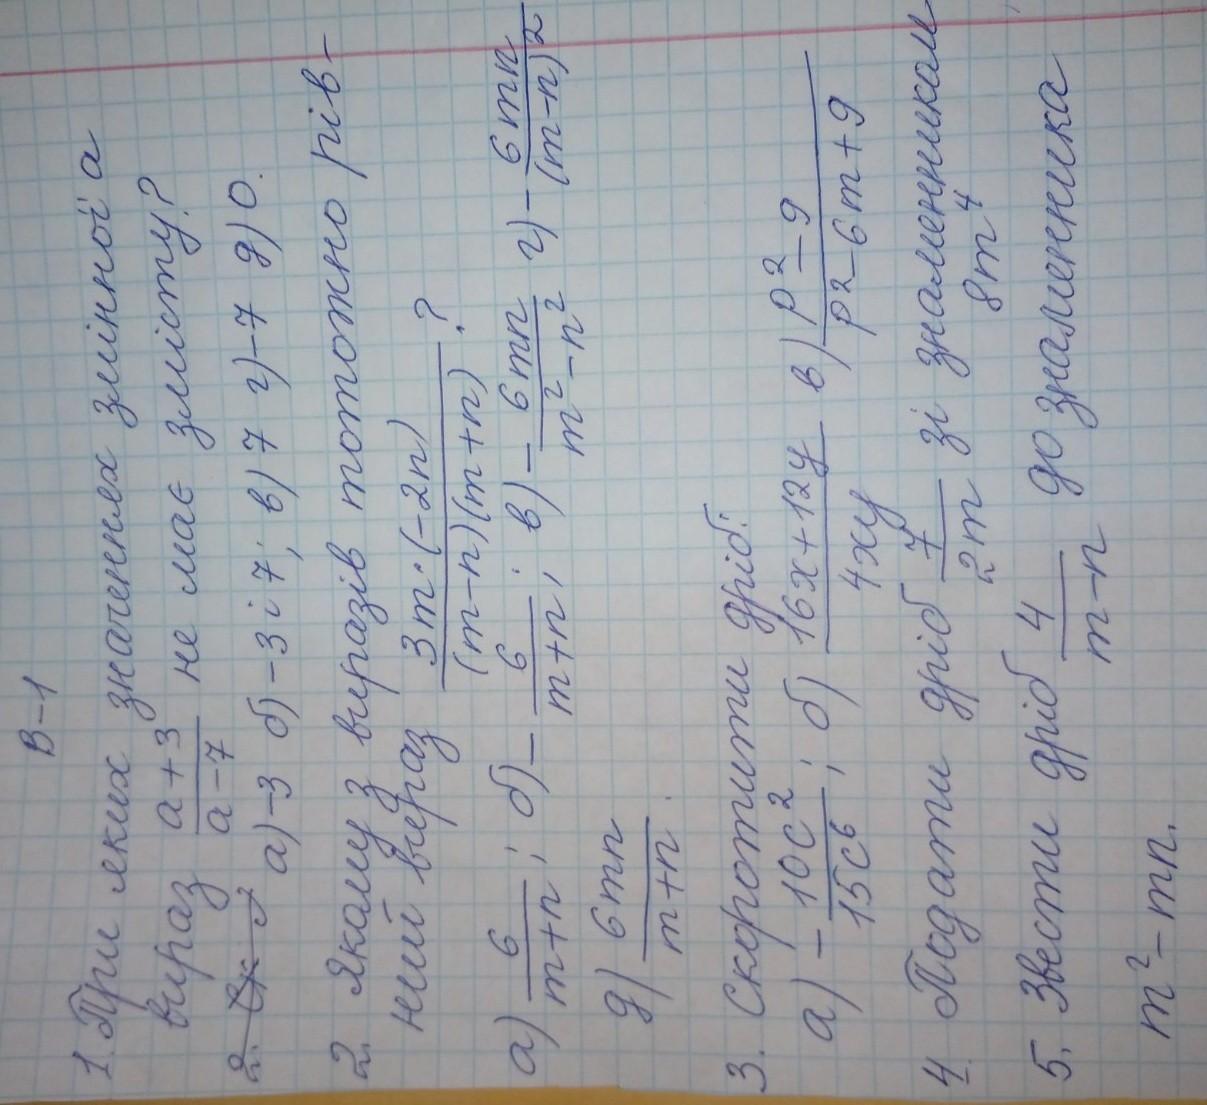 В-1
1. При яких значеннях змінної а
вираз (a+3)/(a-7) не має змісту?
а) -3 б) -3 і 7; в) 7 г) -7 д) 0.
2. Якому з виразів тотожно рів-
ний вираз (3m·(-2n))/((m-n)(m+n))?
а) 6/(m+n); б) -6/(m+n); в) -6mn/(m²-n²) г) -6mn/(m-n)²
д) 6mn/(m+n).
3. Скоротити дріб:
а) -10c²/15c⁶; б) (16x+12y)/4xy в) (p²-9)/(p²-6m+9)
4. Подати дріб 7/2m зі знаменником
8m⁴
5. Звести дріб 4/(m-n) до знаменника
m²-mn.